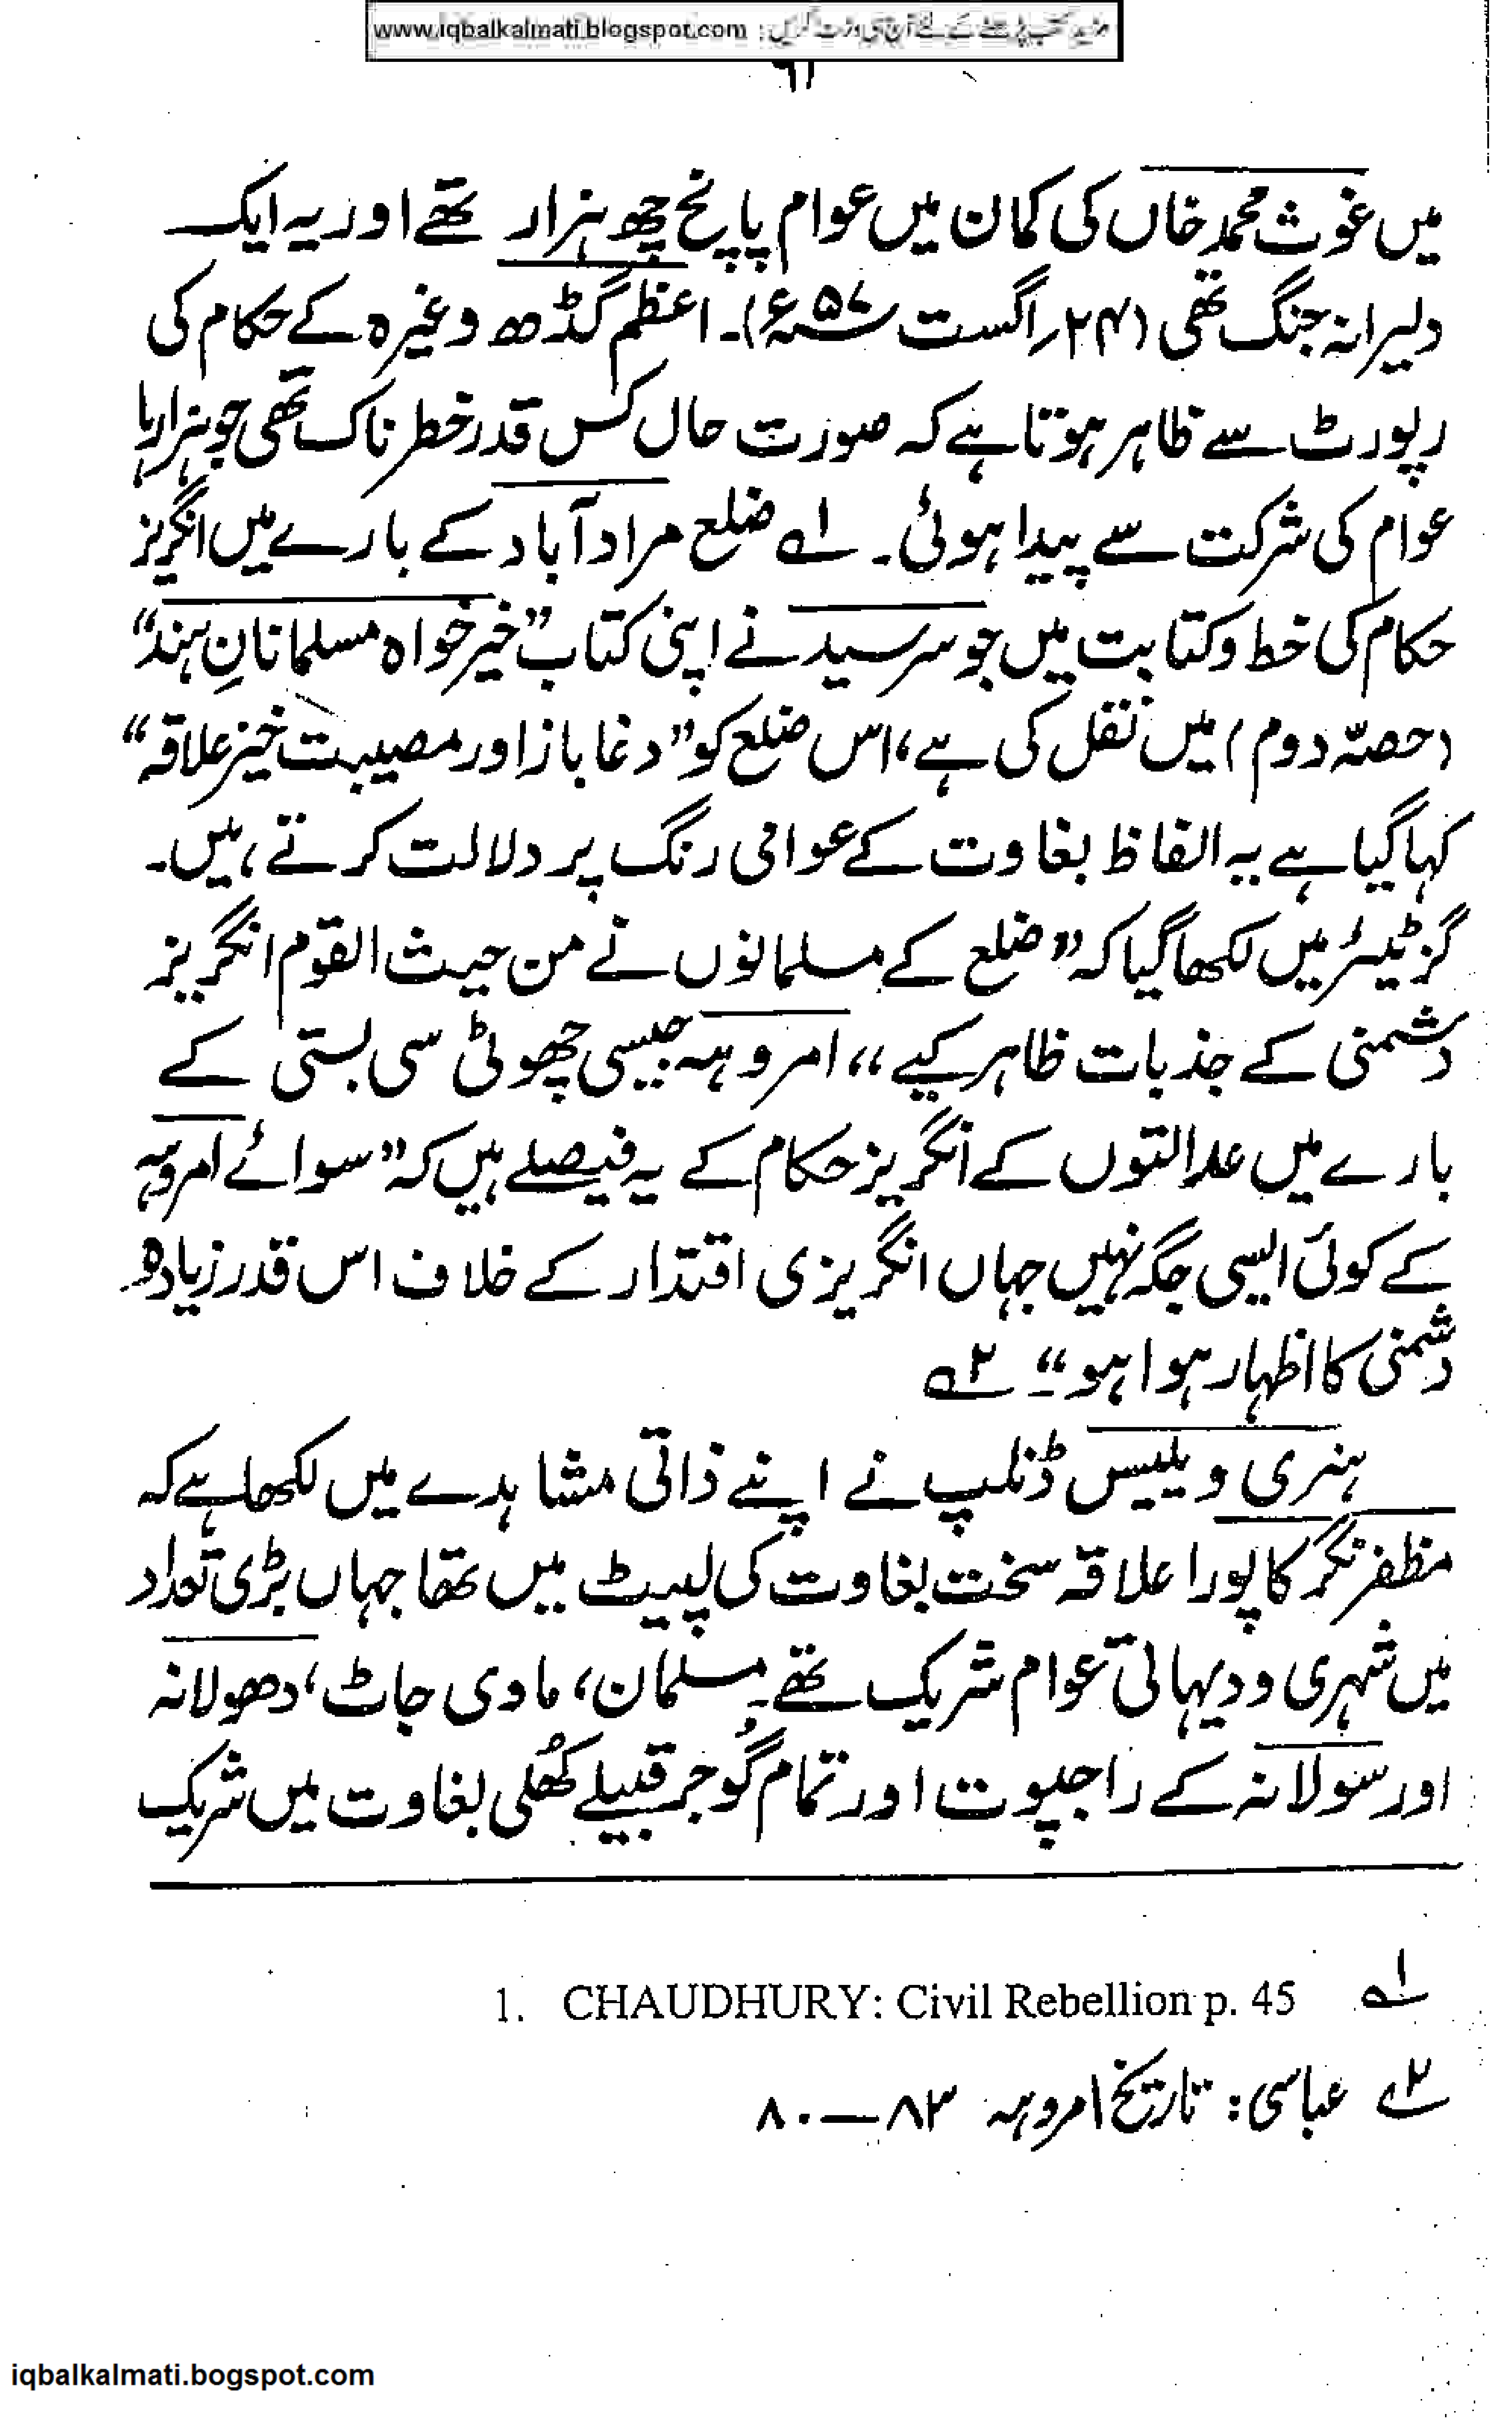 www.iqbalkalmati.blogspot.com : مزید کتب پڑھنے کے لئے آج ہی وزٹ کریں
۶۱
میں غوث محمد خاں کی کمان میں عوام پانچ چھ ہزار تھے اور یہ ایک
دلیرانہ جنگ تھی (۲۴؍اگست ۵۷ء)۔ اعظم گڈھ وغیرہ کے حکام کی
رپورٹ سے ظاہر ہوتا ہے کہ صورت حال کس قدر خطرناک تھی جو ہزارہا
عوام کی شرکت سے پیدا ہوئی۔ ۱ ضلع مرادآباد کے بارے میں انگریز
حکام کی خط و کتابت میں جو سرسید نے اپنی کتاب ”خیرخواہ مسلمانانِ ہند“
(حصہّ دوم) میں نقل کی ہے، اس ضلع کو ”دغاباز اور مصیبت خیز علاقہ“
کہا گیا ہے یہ الفاظ بغاوت کے عوامی رنگ پر دلالت کرتے ہیں۔
گزٹیئر میں لکھا گیا کہ ”ضلع کے مسلمانوں نے من حیث القوم انگریز
دشمنی کے جذبات ظاہر کیے“ امروہہ جیسی چھوٹی سی بستی کے
بارے میں عدالتوں کے انگریز حکام کے یہ فیصلے ہیں کہ ”سوائے امروہہ
کے کوئی ایسی جگہ نہیں جہاں انگریزی اقتدار کے خلاف اس قدر زیادہ
دشمنی کا اظہار ہوا ہو“۔ ۲
ہنری ویلیس ڈنلپ نے اپنے ذاتی مشاہدے میں لکھا ہے کہ
مظفرنگر کا پورا علاقہ سخت بغاوت کی لپیٹ میں تھا جہاں بڑی تعداد
میں شہری و دیہاتی عوام شریک تھے۔ مسلمان، ماوی جاٹ، دھولانہ
اور سولانہ کے راجپوت اور تمام گُوجر قبیلے کھُلی بغاوت میں شریک
۱ 1. CHAUDHURY: Civil Rebellion p. 45
۲ عباسی: تاریخ امروہہ ۸۳—۸۰
iqbalkalmati.bogspot.com